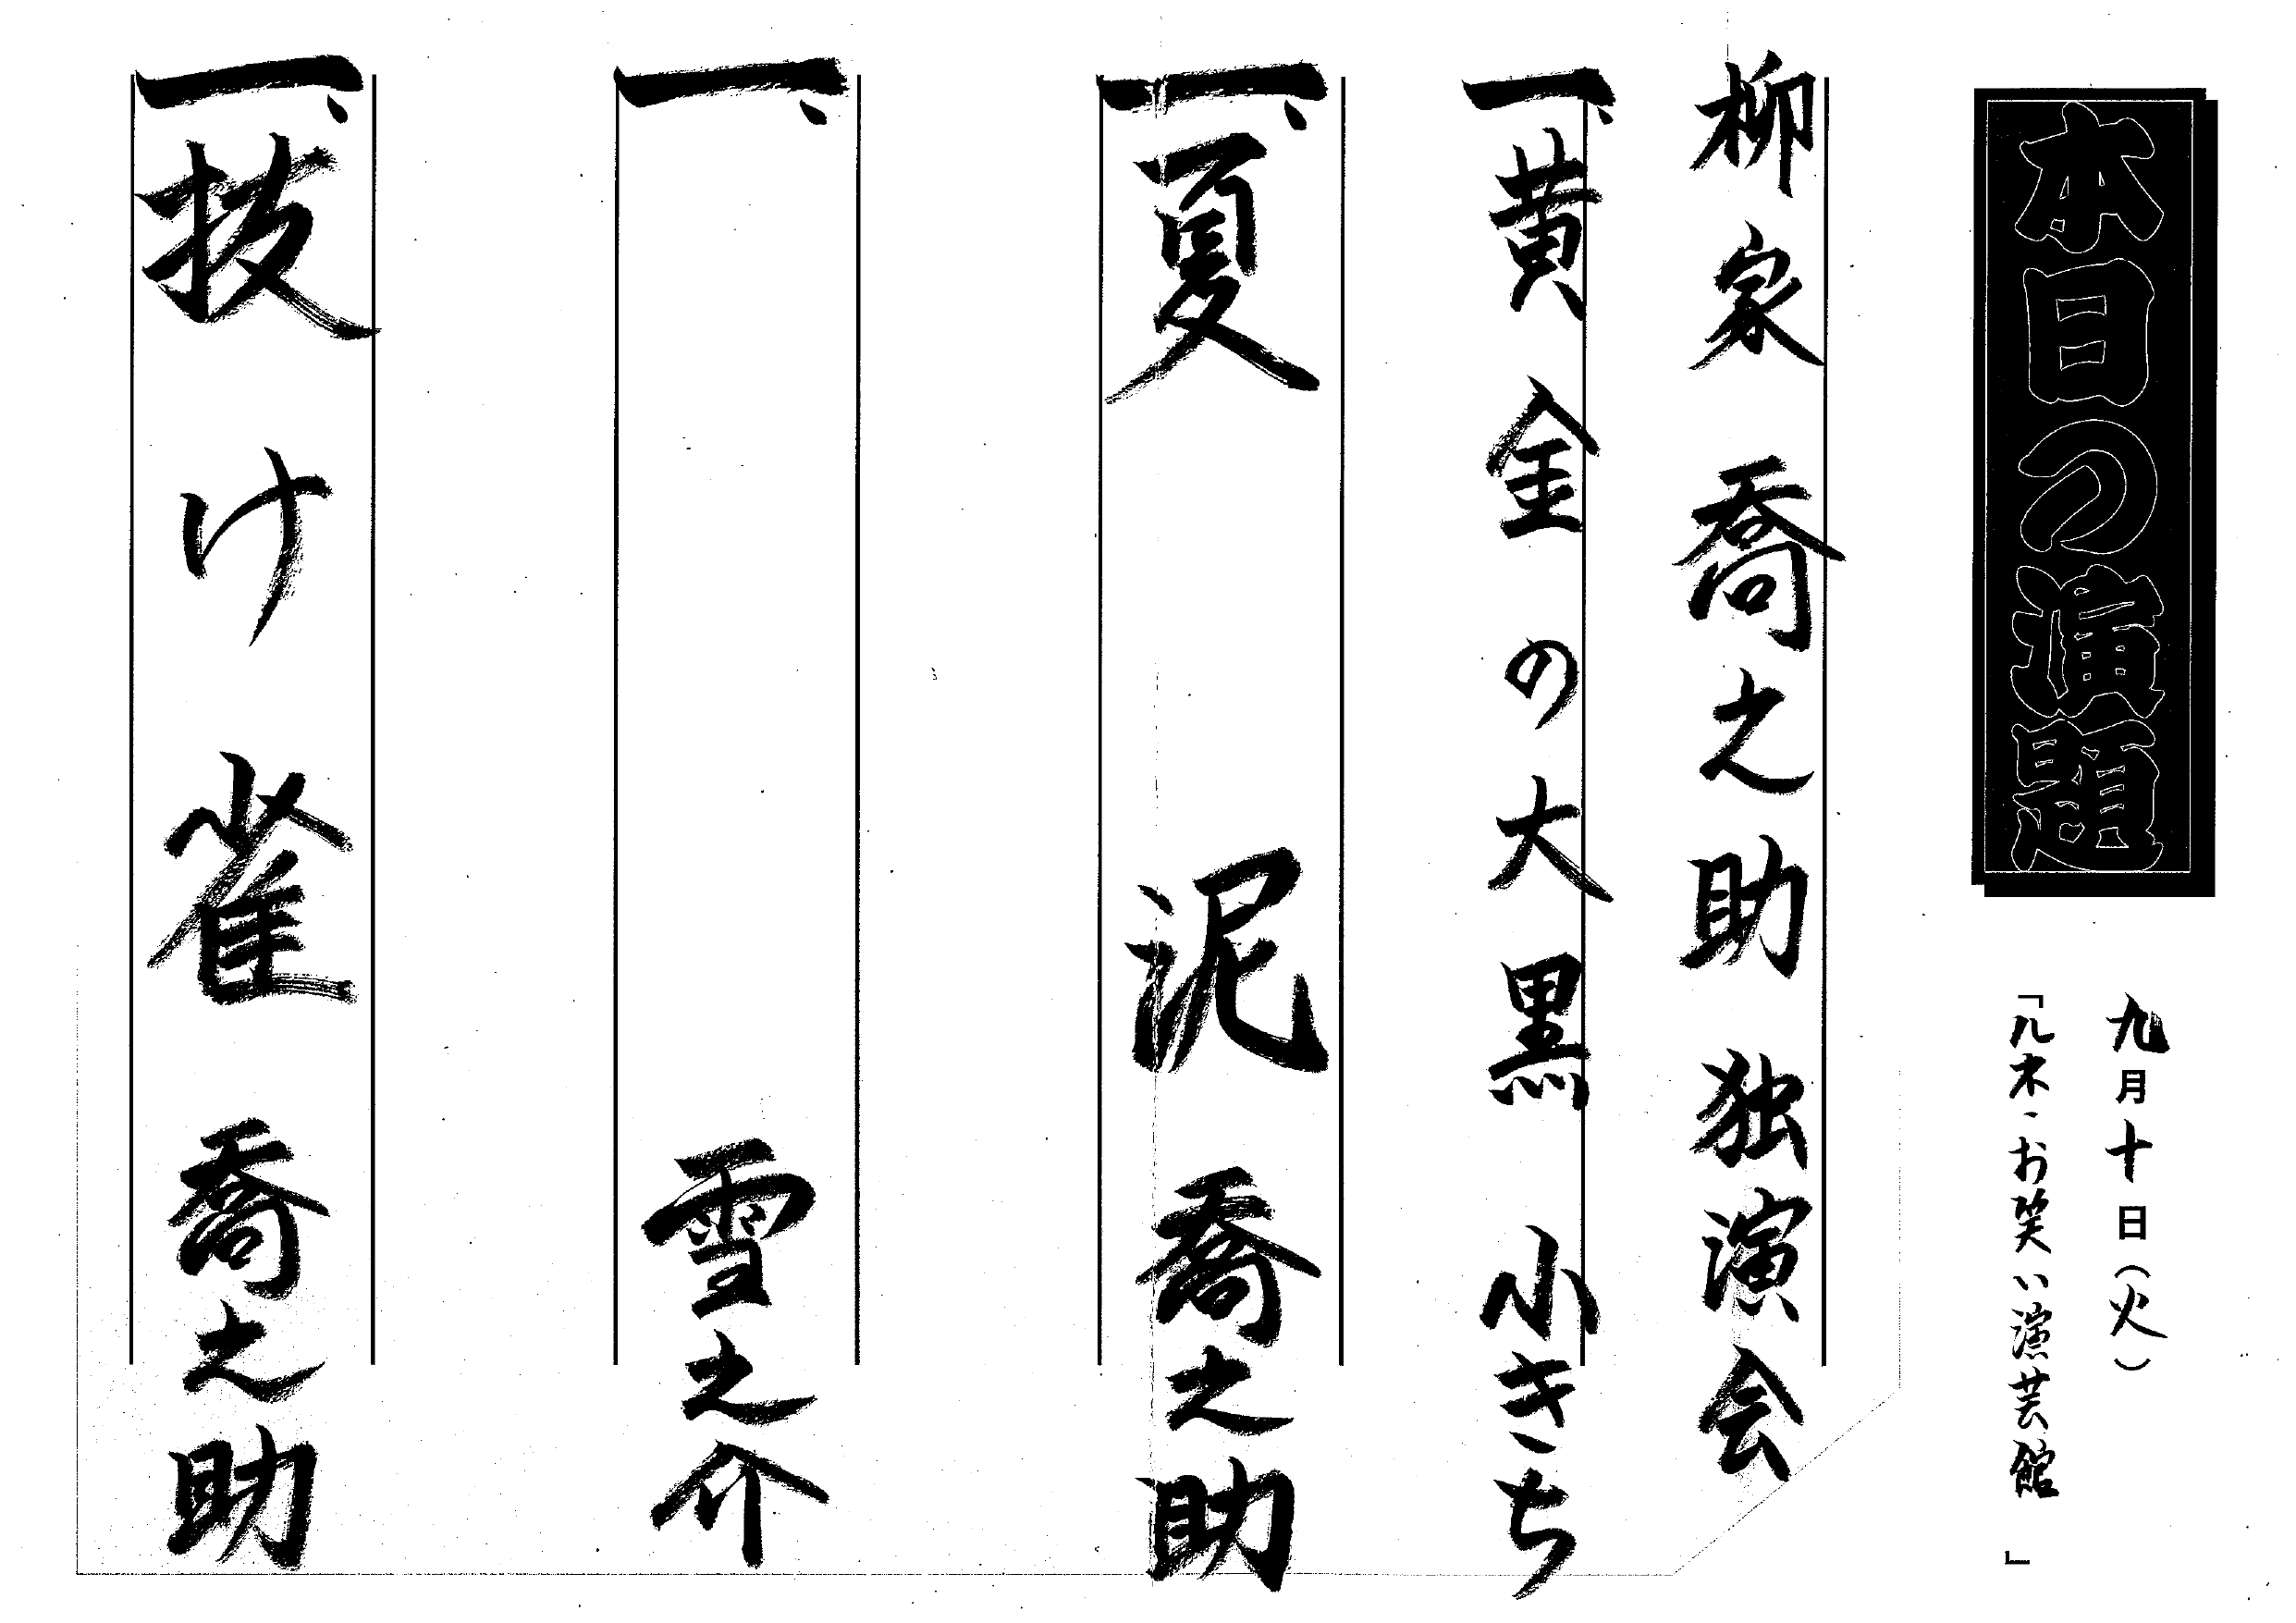 本日の演題
九月十日(火)
「凡木・お笑い演芸館」
柳家 喬之助 独演会
一、黄金の大黒 小きち
一、夏泥 喬之助
一、 雪之介
一、抜け雀 喬之助